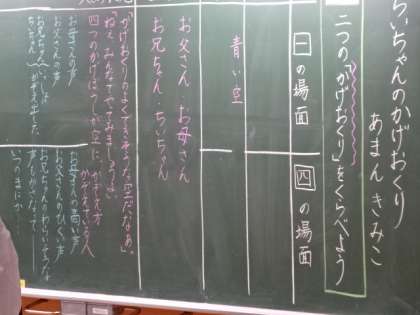 ちいちゃんのかげおくり
あまん きみこ
二つの「かげおくり」をくらべよう
一の場面
四の場面
青い空
お父さん・お母さん
お兄ちゃん・ちいちゃん
「かげおくりのよくできそうな空だなあ。」
「ねえ、みんなでやってみましょうよ。」
四つのかげぼうしが空に
お母さんの声
お父さんの声
ちいちゃん
お兄ちゃん
かぞえ方
かぞえている人
かぞえだした
お母さんの高い声
お父さんのひくい声
お兄ちゃんのわらいそうな
声もかさなって
いつのまにか…